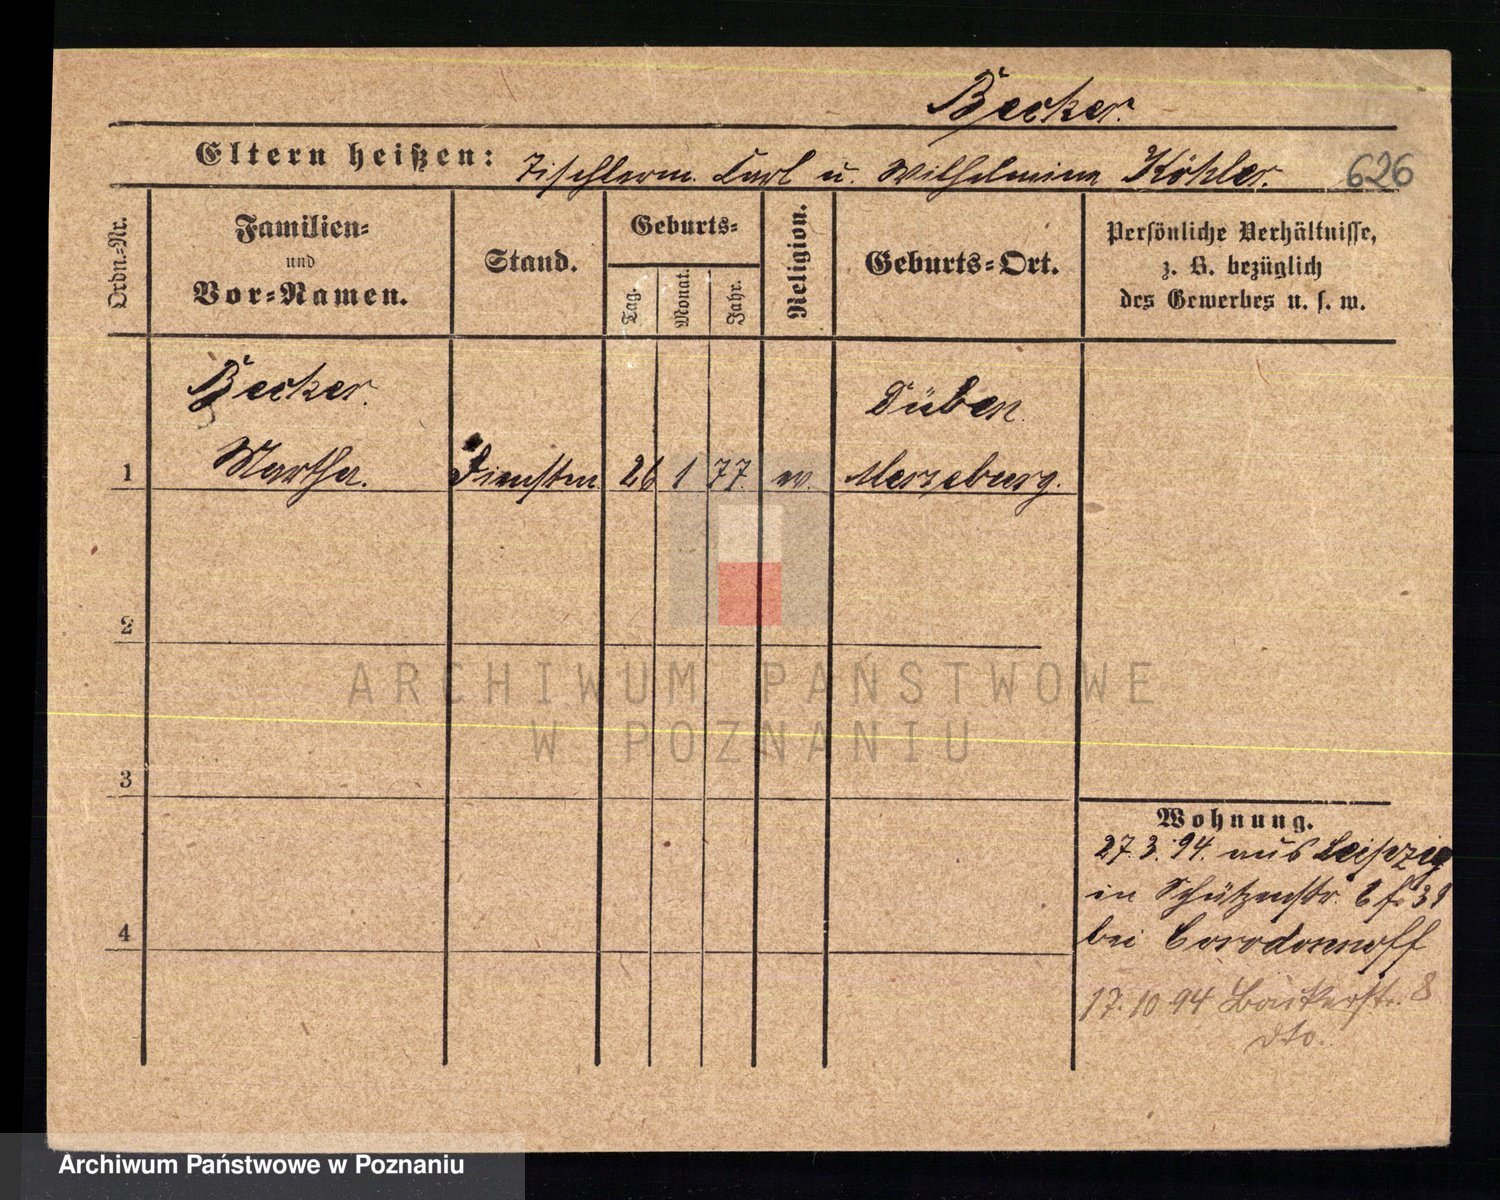 Becker.
Eltern heißen: Tischlerm. Carl u. Wilhelmine Köhler. 626
Ordn.-Nr.
Familien-
und
Vor-Namen.
Stand.
Geburts-
Tag.
Monat.
Jahr.
Religion.
Geburts-Ort.
Persönliche Verhältnisse,
z. B. bezüglich
des Gewerbes u. s. w.
Becker.
Düben.
1 Martha. Dienstm 26 1 77 ev. Merseburg.
2
ARCHIWUM PAŃSTWOWE
W POZNANIU
3
Wohnung.
27.3.94. aus Leipzig
in Schützenstr.
4
bei
17.10 94 Bäckerstr. 8
dto.
Archiwum Państwowe w Poznaniu